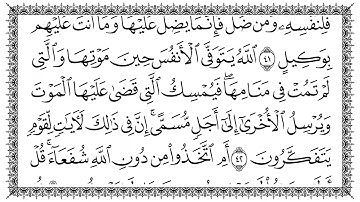 فَلِنَفْسِهِۦ وَمَن ضَلَّ فَإِنَّمَا يَضِلُّ عَلَيْهَا وَمَآ أَنتَ عَلَيْهِم
بِوَكِيلٍ ٤١ ٱللَّهُ يَتَوَفَّى ٱلْأَنفُسَ حِينَ مَوْتِهَا وَٱلَّتِى
لَمْ تَمُتْ فِى مَنَامِهَا فَيُمْسِكُ ٱلَّتِى قَضَىٰ عَلَيْهَا ٱلْمَوْتَ
وَيُرْسِلُ ٱلْأُخْرَىٰٓ إِلَىٰٓ أَجَلٍ مُّسَمًّى إِنَّ فِى ذَٰلِكَ لَءَايَٰتٍ لِّقَوْمٍ
يَتَفَكَّرُونَ ٤٢ أَمِ ٱتَّخَذُوا۟ مِن دُونِ ٱللَّهِ شُفَعَآءَ قُلْ